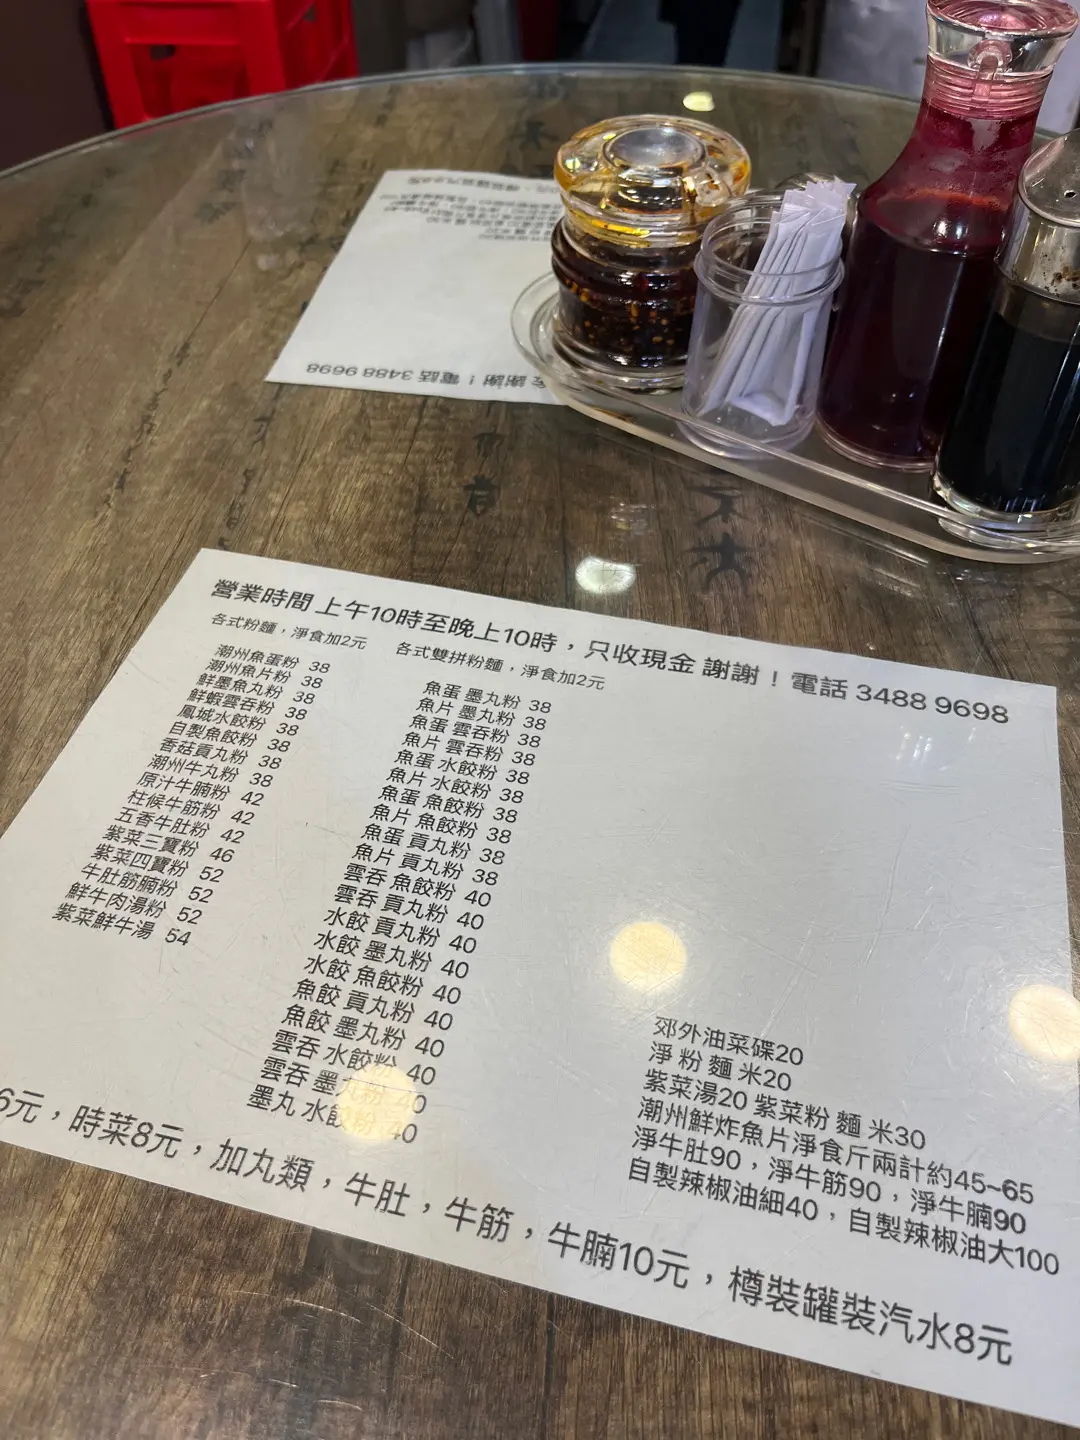 電話 3488 9698
營業時間 上午10時至晚上10時，只收現金 謝謝！電話 3488 9698
各式粉麵，淨食加2元
潮州魚蛋粉 38
潮州魚片粉 38
鮮墨魚丸粉 38
鮮蝦雲吞粉 38
鳳城水餃粉 38
自製魚餃粉 38
香菇貢丸粉 38
潮州牛丸粉 38
原汁牛腩粉 42
柱候牛筋粉 42
五香牛肚粉 42
紫菜三寶粉 46
紫菜四寶粉 52
牛肚筋腩粉 52
鮮牛肉湯粉 52
紫菜鮮牛湯 54
各式雙拼粉麵，淨食加2元
魚蛋 墨丸粉 38
魚片 墨丸粉 38
魚蛋 雲吞粉 38
魚片 雲吞粉 38
魚蛋 水餃粉 38
魚片 水餃粉 38
魚蛋 魚餃粉 38
魚片 魚餃粉 38
魚蛋 貢丸粉 38
魚片 貢丸粉 38
雲吞 魚餃粉 40
雲吞 貢丸粉 40
水餃 貢丸粉 40
水餃 墨丸粉 40
水餃 魚餃粉 40
魚餃 貢丸粉 40
魚餃 墨丸粉 40
雲吞 水餃粉 40
雲吞 墨丸粉 40
墨丸 水餃粉 40
郊外油菜碟20
淨 粉 麵 米20
紫菜湯20 紫菜粉 麵 米30
潮州鮮炸魚片淨食斤兩計約45~65
淨牛肚90，淨牛筋90，淨牛腩90
自製辣椒油細40，自製辣椒油大100
6元，時菜8元，加丸類，牛肚，牛筋，牛腩10元，樽裝罐裝汽水8元